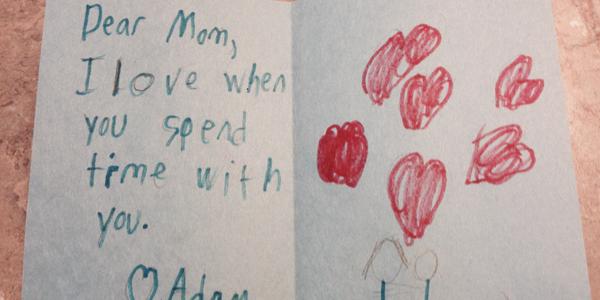 Dear Mom,
I love when
you spend
time with
you.
♡ Adam